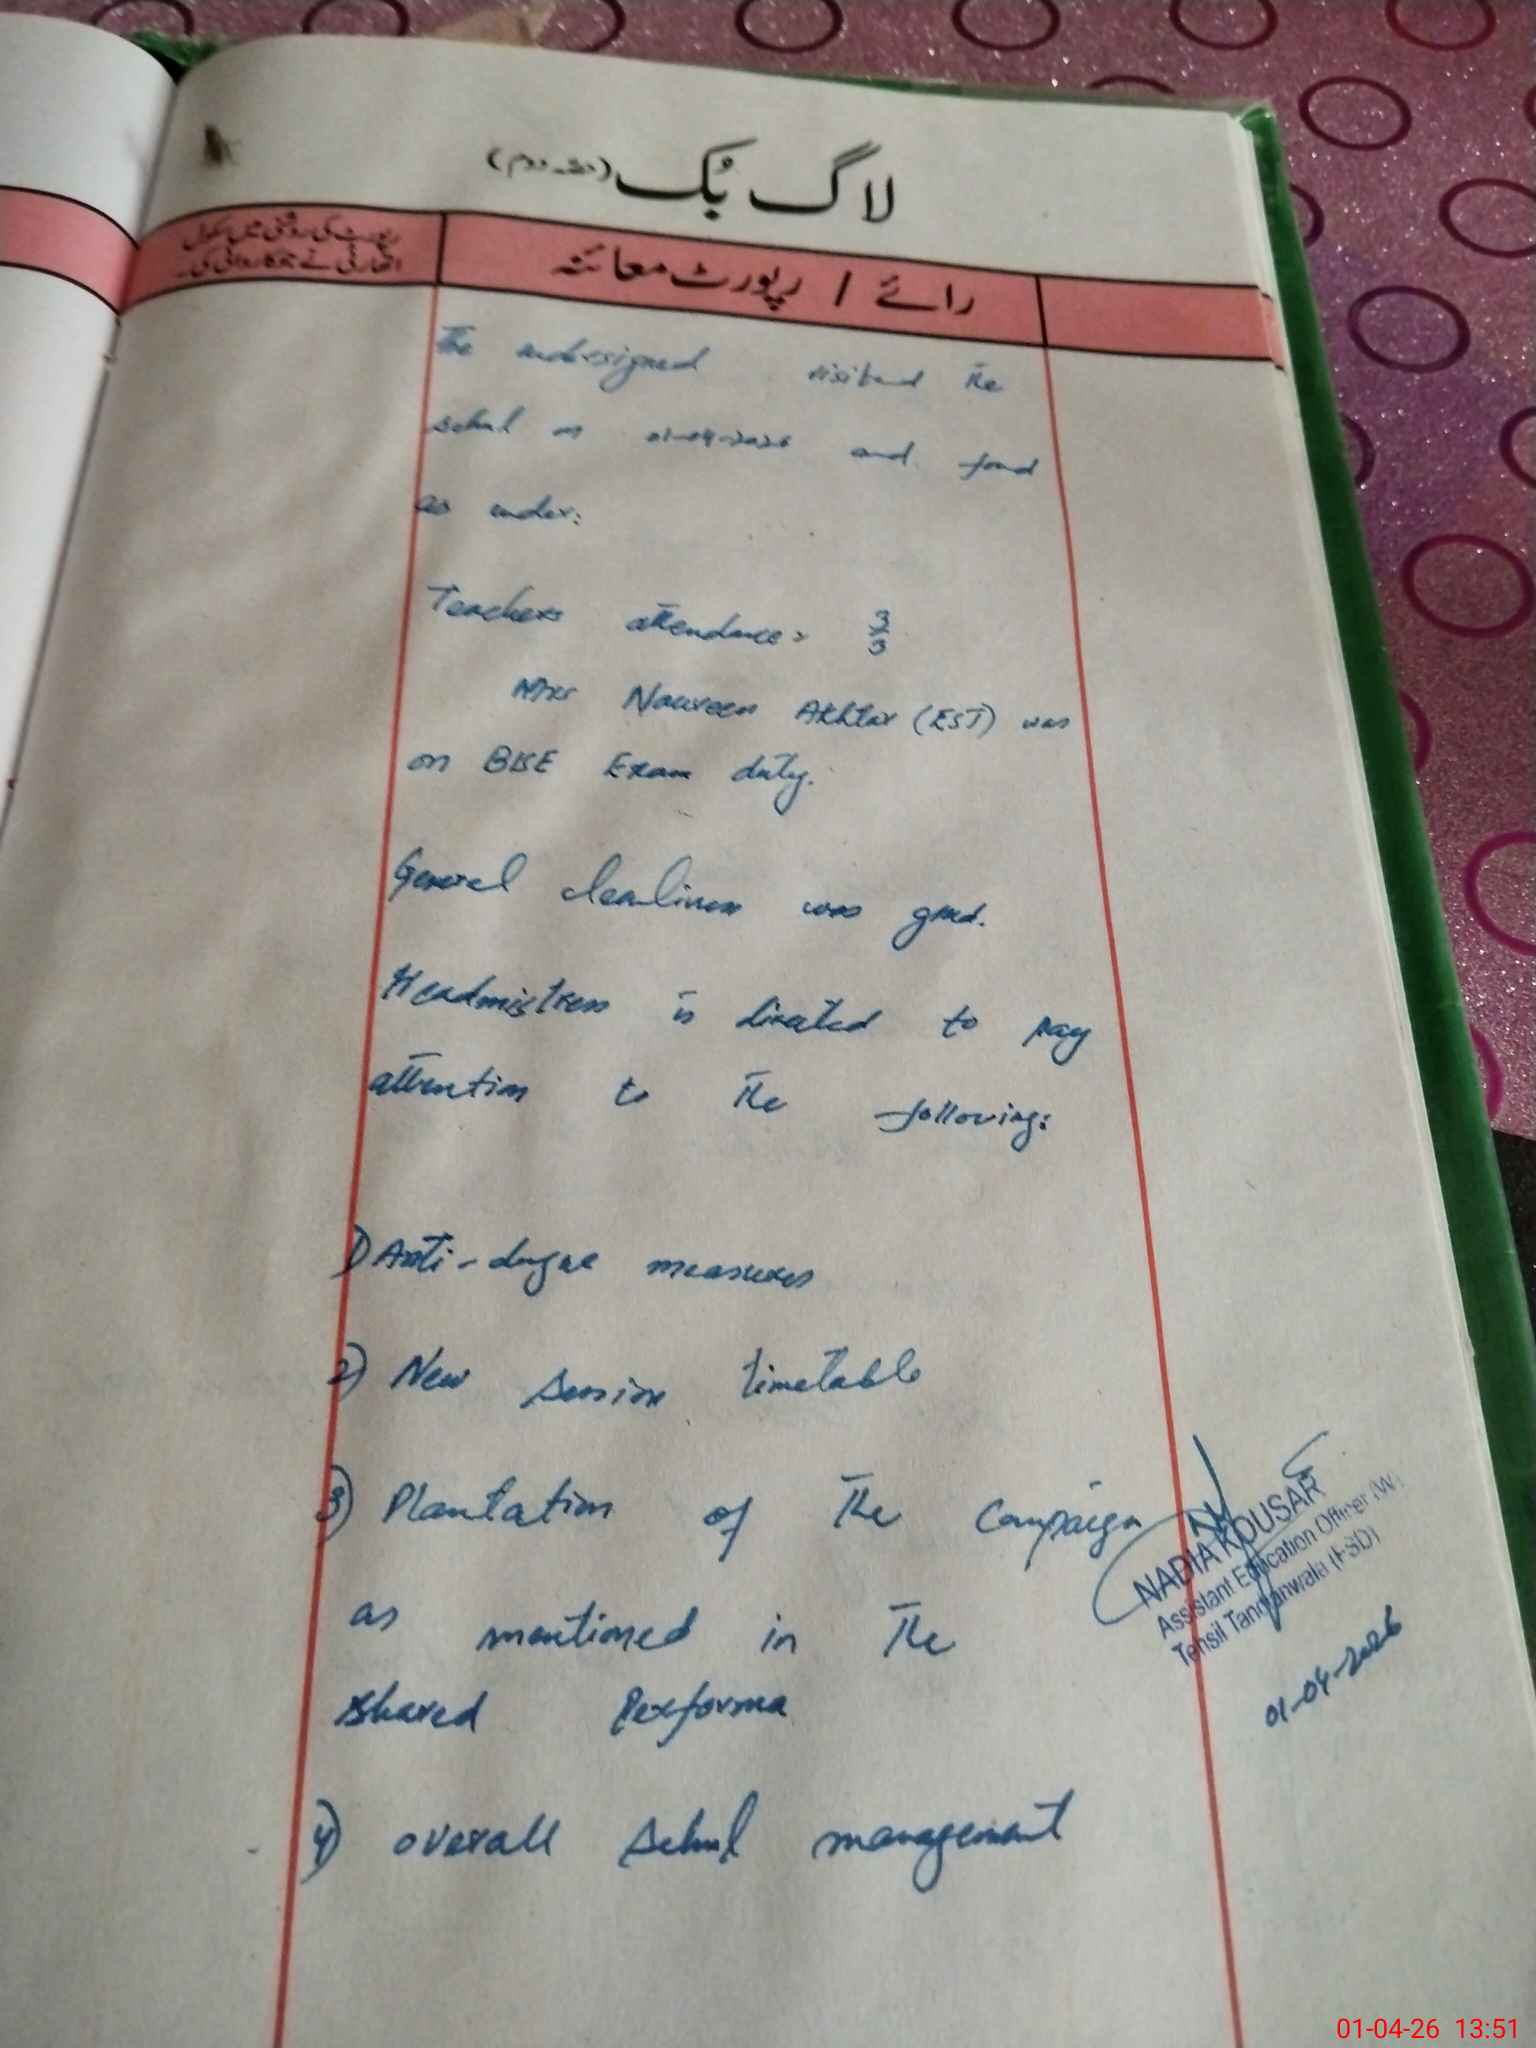 لاگ بُک (حصہ دوم)
رائے / رپورٹ معائنہ
رپورٹ کی روشنی میں سکول
اتھارٹی نے جو کاروائی کی۔
The undersigned visited the
school on 01-04-2026 and found
as under:
Teachers attendance = 3/3
Mrs Noureen Akhtar (EST) was
on BISE Exam duty.
General cleanliness was good.
Headmistress is directed to pay
attention to the following:
1) Anti-dengue measures
2) New session timetable
3) Plantation of the campaign
as mentioned in the
shared Performa
4) overall school management
NADIA KOUSAR
Assistant Education Officer (W)
Tehsil Tandlianwala (FSD)
01-04-2026
01-04-26 13:51